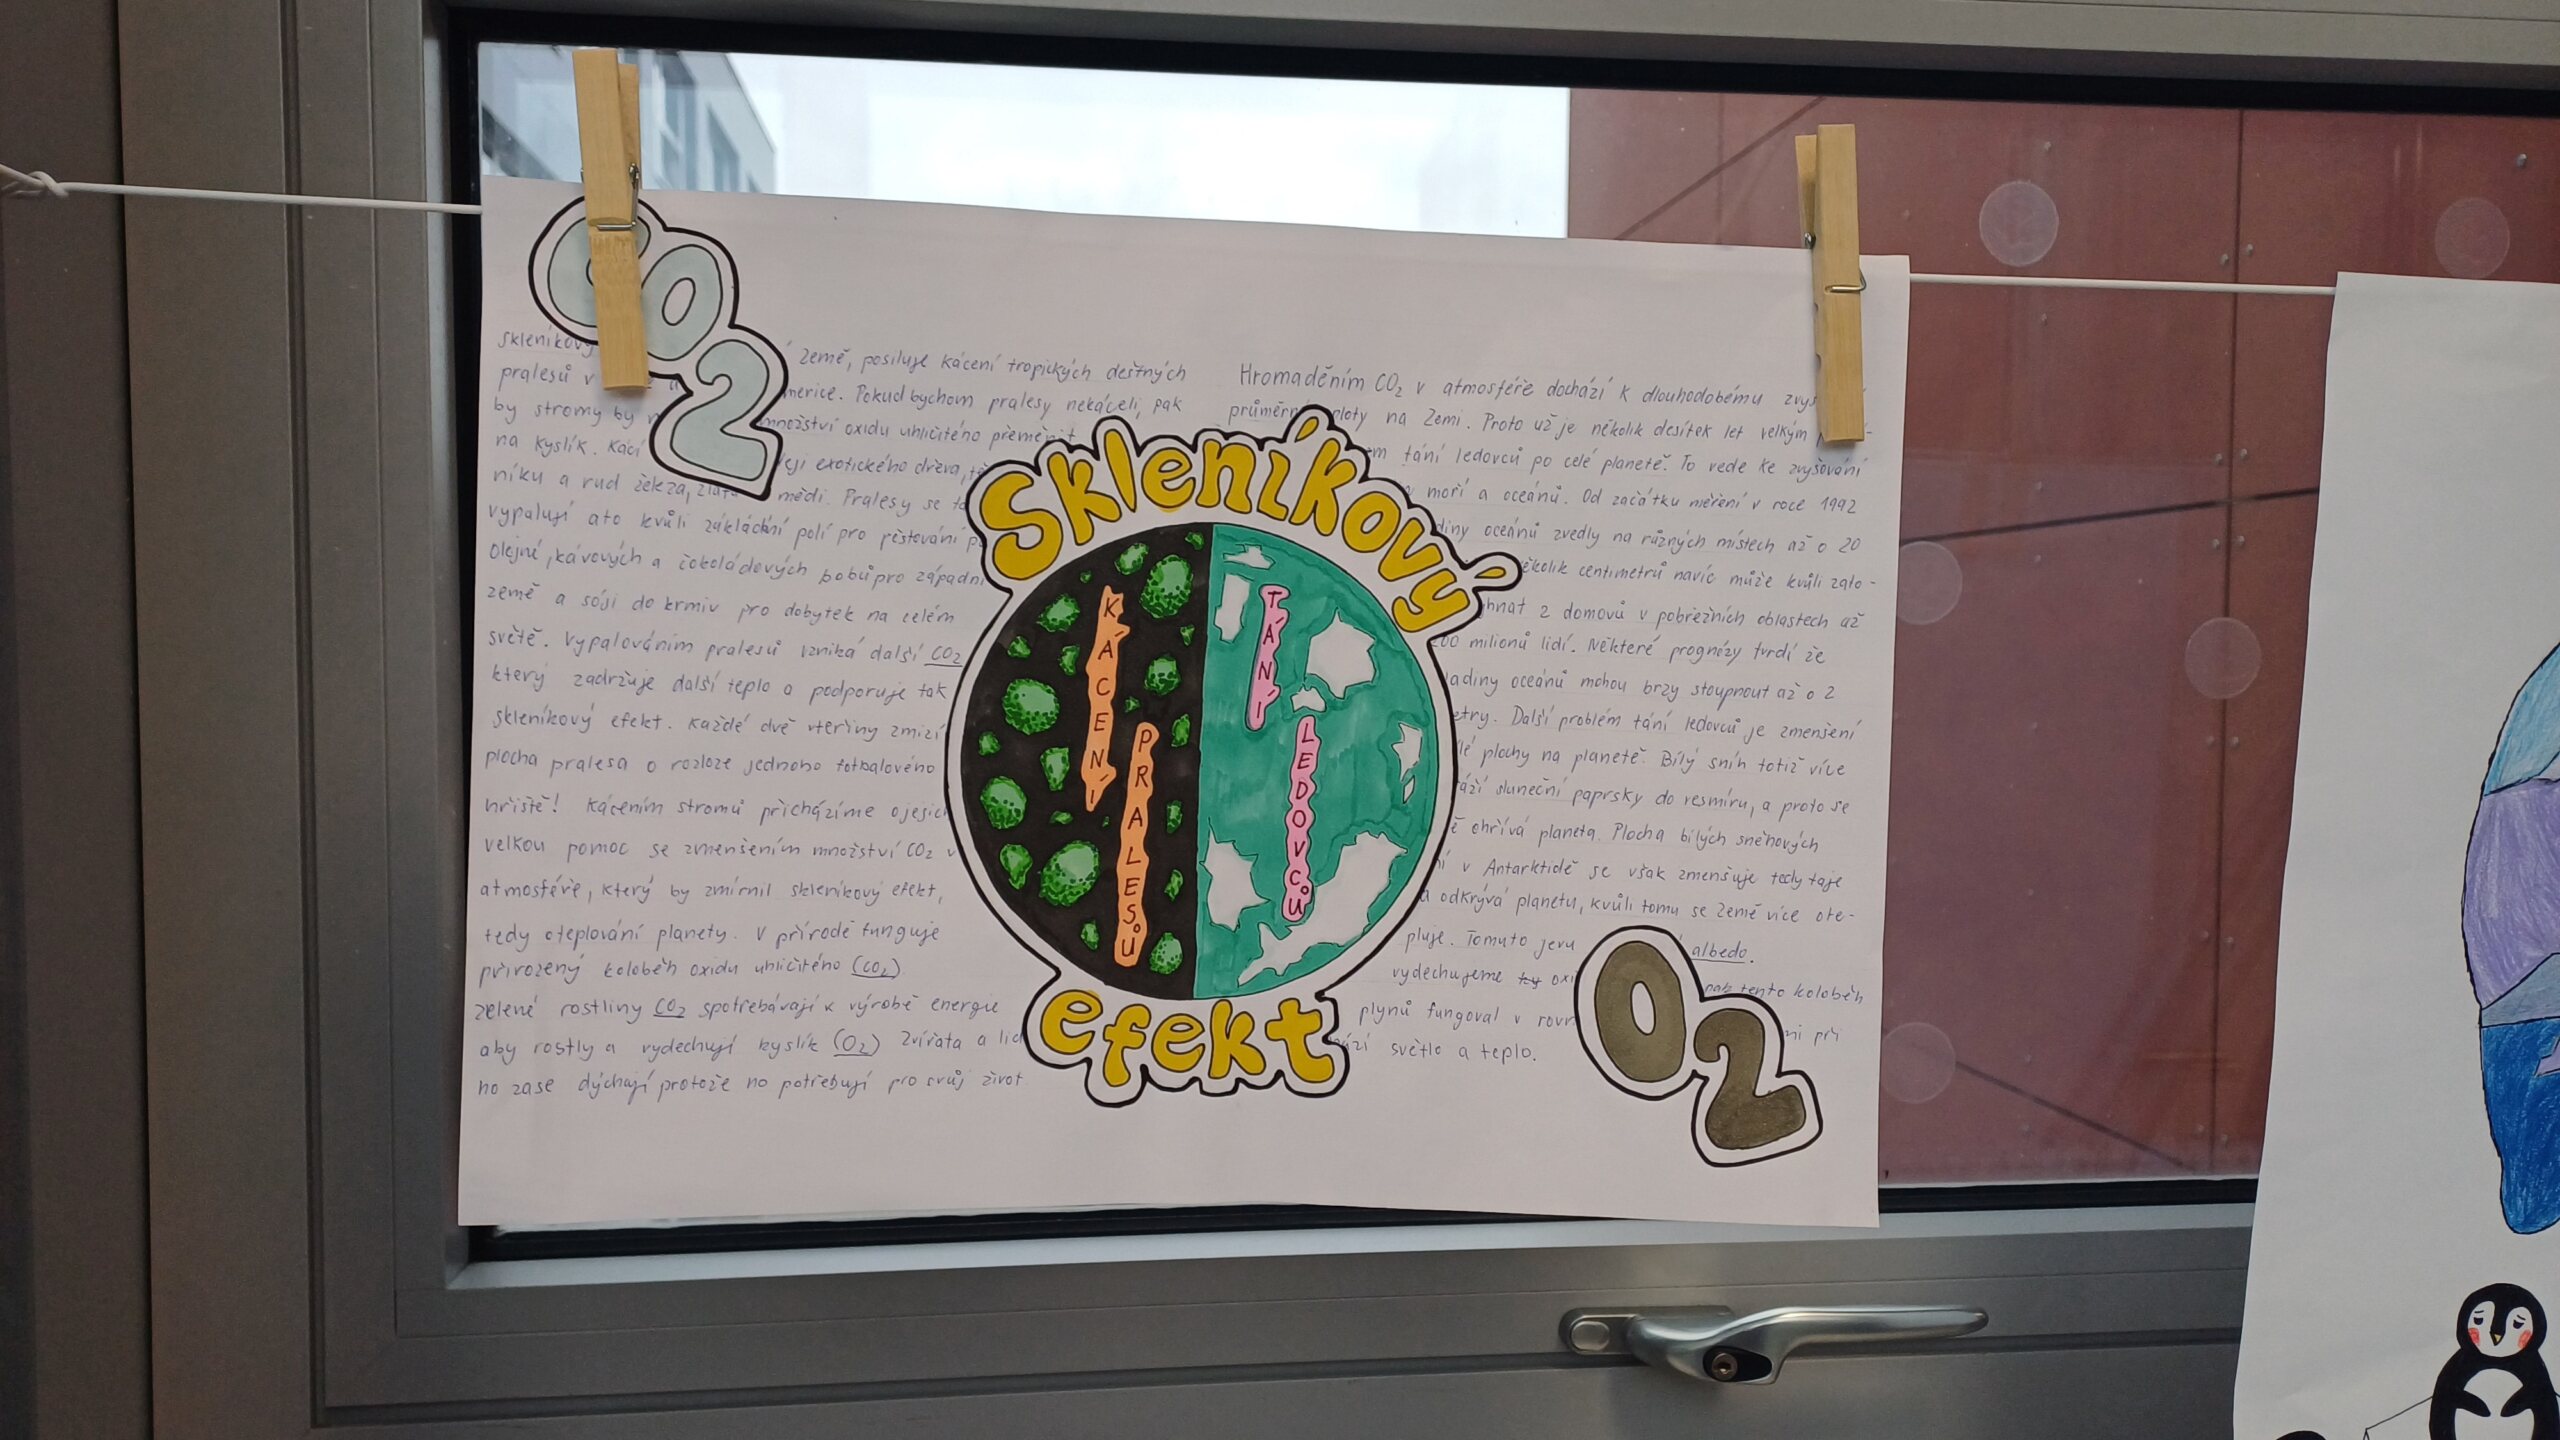 CO2
skleníkový Země, posiluje kácení tropických deštných
pralesů v Pokud bychom pralesy nekáceli, pak
by stromy by množství oxidu uhličitého přeměnit
na kyslík. Kácí exotického dřeva,
níku a rud železa, mědi. Pralesy se
vypalují a to kvůli zakládání polí pro pěstování
olejné, kávových a čokoládových bobů pro západní
země a sóji do krmiv pro dobytek na celém
světě. Vypalováním pralesů vzniká další CO2
který zadržuje další teplo a podporuje tak
skleníkový efekt. Každé dvě vteřiny zmizí
plocha pralesa o rozloze jednoho fotbalového
hřiště! Kácením stromů přicházíme o jejich
velkou pomoc se zmenšením množství CO2 v
atmosféře, který by zmírnil skleníkový efekt,
tedy oteplování planety. V přírodě funguje
přirozený koloběh oxidu uhličitého (CO2).
zelené rostliny CO2 spotřebávají k výrobě energie
aby rostly a vydechují kyslík (O2) Zvířata a
ho zase dýchají protože ho potřebují pro svůj život
Skleníkový
KÁCENÍ
PRALESŮ
TÁNÍ
LEDOVCŮ
efekt
Hromaděním CO2 v atmosféře dochází k dlouhodobému
na Zemi. Proto už je několik desítek let velkým
tání ledovců po celé planetě. To vede ke zvyšování
moří a oceánů. Od začátku měření v roce 1992
oceánů zvedly na různých místech až o 20
několik centimetrů navíc může kvůli zato-
z domovů v pobřežních oblastech až
200 milionů lidí. Některé prognózy tvrdí že
hladiny oceánů mohou brzy stoupnout až o 2
metry. Další problém tání ledovců je zmenšení
plochy na planetě. Bílý sníh totiž více
sluneční paprsky do vesmíru, a proto se
ohřívá planeta. Plocha bílých sněhových
v Antarktidě se však zmenšuje tedy taje
a odkrývá planetu, kvůli tomu se Země více ote-
pluje. Tomuto jevu albedo.
vydechujeme pak tento koloběh
plynů fungoval v při
světlo a teplo.
O2